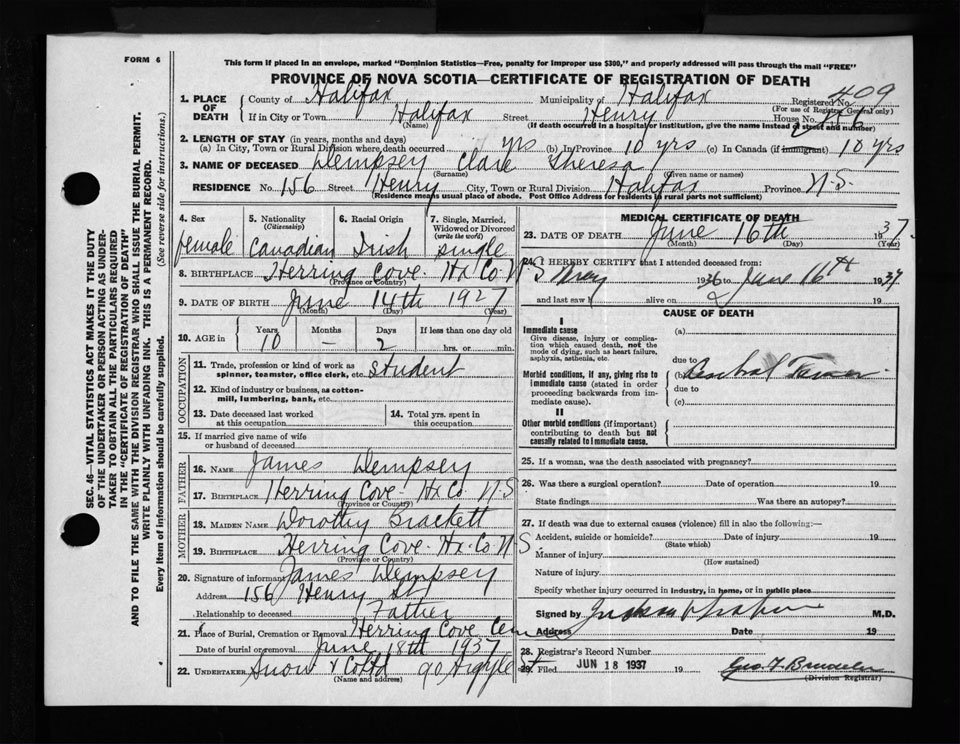 FORM 6
This form if placed in an envelope, marked "Dominion Statistics—Free, penalty for improper use $300," and properly addressed will pass through the mail "FREE"
PROVINCE OF NOVA SCOTIA—CERTIFICATE OF REGISTRATION OF DEATH
SEC. 46—VITAL STATISTICS ACT MAKES IT THE DUTY
OF THE UNDERTAKER OR PERSON ACTING AS UNDER-
TAKER TO OBTAIN ALL THE PARTICULARS REQUIRED
IN THE "CERTIFICATE OF REGISTRATION OF DEATH"
AND TO FILE THE SAME WITH THE DIVISION REGISTRAR WHO SHALL ISSUE THE BURIAL PERMIT.
WRITE PLAINLY WITH UNFADING INK. THIS IS A PERMANENT RECORD.
Every item of information should be carefully supplied. (See reverse side for instructions.)
1. PLACE OF DEATH County of Halifax Municipality of Halifax Registered No. 409
(For use of Registrar General only)
If in City or Town Halifax Street Henry House No.
(Name) (If death occurred in a hospital or institution, give the name instead of street and number)
2. LENGTH OF STAY (in years, months and days)
(a) In City, Town or Rural Division where death occurred yrs (b) In Province 10 yrs (c) In Canada (if immigrant) 10 yrs
3. NAME OF DECEASED Dempsey Clare Theresa
(Surname) (Given name or names)
RESIDENCE No. 156 Street Henry City, Town or Rural Division Halifax Province N.S.
(Residence means usual place of abode. Post Office Address for residents in rural parts not sufficient)
4. Sex 5. Nationality (Citizenship) 6. Racial Origin 7. Single, Married, Widowed or Divorced (write the word)
female Canadian Irish single
8. BIRTHPLACE Herring Cove. Hx Co N S
(Province or Country)
9. DATE OF BIRTH June 14th 1927
(Month) (Day) (Year)
10. AGE in Years Months Days If less than one day old
10 – 2 hrs. or min.
OCCUPATION
11. Trade, profession or kind of work as student
spinner, teamster, office clerk, etc.
12. Kind of industry or business, as cotton-
mill, lumbering, bank, etc.
13. Date deceased last worked
at this occupation
14. Total yrs. spent in
this occupation
15. If married give name of wife
or husband of deceased
FATHER
16. NAME James Dempsey
17. BIRTHPLACE Herring Cove- Hx Co N-S
(Province or Country)
MOTHER
18. MAIDEN NAME Dorothy Brackett
19. BIRTHPLACE Herring Cove. Hx. Co N S
(Province or Country)
20. Signature of informant James Dempsey
Address 156 Henry St
Relationship to deceased Father
21. Place of Burial, Cremation or Removal Herring Cove
Date of burial or removal June 18th 1937
22. UNDERTAKER Snow & Co Ltd 90 Argyle St
(Name and address)
MEDICAL CERTIFICATE OF DEATH
23. DATE OF DEATH June 16th 1937.
(Month) (Day) (Year)
24. I HEREBY CERTIFY that I attended deceased from:
May 1936 to June 16th 1937
and last saw h alive on 19
CAUSE OF DEATH
I
Immediate cause (a)
Give disease, injury or complica-
tion which caused death, not the
mode of dying, such as heart failure,
asphyxia, asthenia, etc.
due to
Morbid conditions, if any, giving rise to
immediate cause (stated in order
proceeding backwards from im-
mediate cause).
(b)
due to
(c)
II
Other morbid conditions (if important)
contributing to death but not
causally related to immediate cause.
25. If a woman, was the death associated with pregnancy?
26. Was there a surgical operation? Date of operation 19
State findings Was there an autopsy?
27. If death was due to external causes (violence) fill in also the following:—
Accident, suicide or homicide? Date of injury 19
(State which)
Manner of injury
(How sustained)
Nature of injury
Specify whether injury occurred in industry, in home, or in public place
Signed by M.D.
Address Date 19
28. Registrar's Record Number
29. Filed JUN 18 1937 19
(Division Registrar)